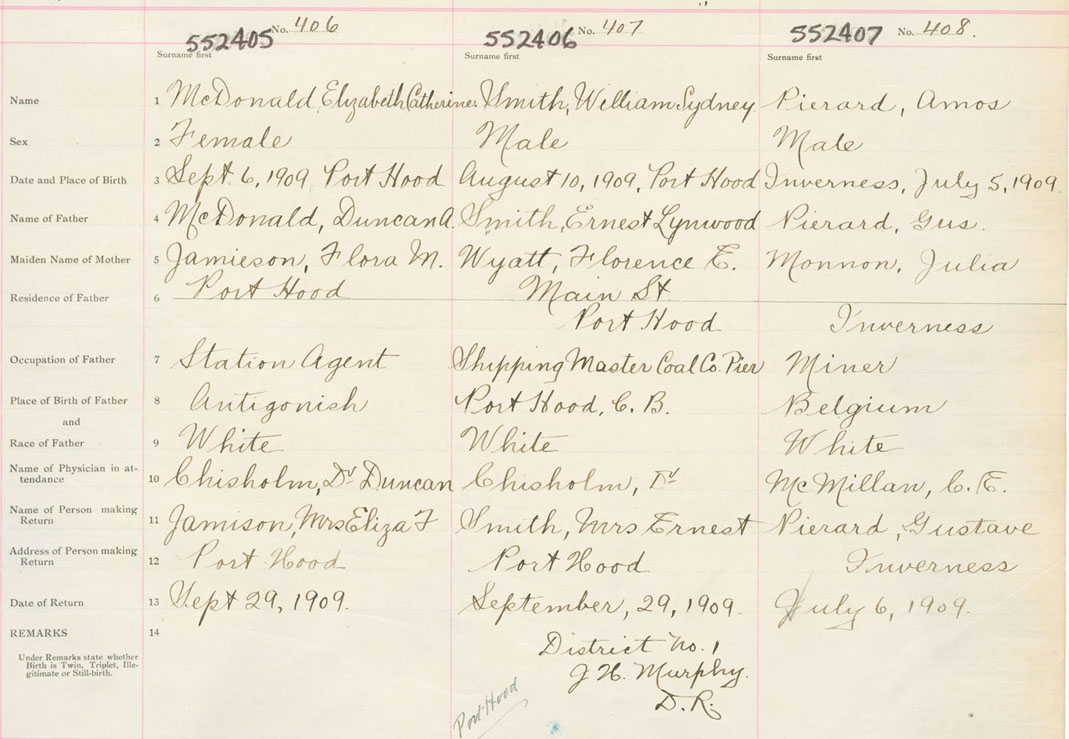 552405 No. 406 552406 No. 407 552407 No. 408.
Surname first Surname first Surname first
Name 1 McDonald, Elizabeth Catherine. Smith, William Sydney Pierard, Amos
Sex 2 Female Male Male
Date and Place of Birth 3 Sept 6, 1909, Port Hood August 10, 1909, Port Hood Inverness, July 5, 1909.
Name of Father 4 McDonald, Duncan A. Smith, Ernest Lynwood Pierard, Gus.
Maiden Name of Mother 5 Jamieson, Flora M. Wyatt, Florence E. Monnon, Julia
Residence of Father 6 Port Hood Main St
Port Hood Inverness
Occupation of Father 7 Station Agent Shipping Master Coal Co. Pier Miner
Place of Birth of Father 8 Antigonish Port Hood, C. B. Belgium
and
Race of Father 9 White White White
Name of Physician in at-
tendance 10 Chisholm, Dr Duncan Chisholm, Dr McMillan, C. E.
Name of Person making
Return 11 Jamison, Mrs Eliza F Smith, Mrs Ernest Pierard, Gustave
Address of Person making
Return 12 Port Hood Port Hood Inverness
Date of Return 13 Sept 29, 1909. September, 29, 1909. July 6, 1909.
REMARKS 14
Under Remarks state whether
Birth is Twin, Triplet, Ille-
gitimate or Still-birth.
District No. 1
J. H. Murphy.
D. R.
Port Hood